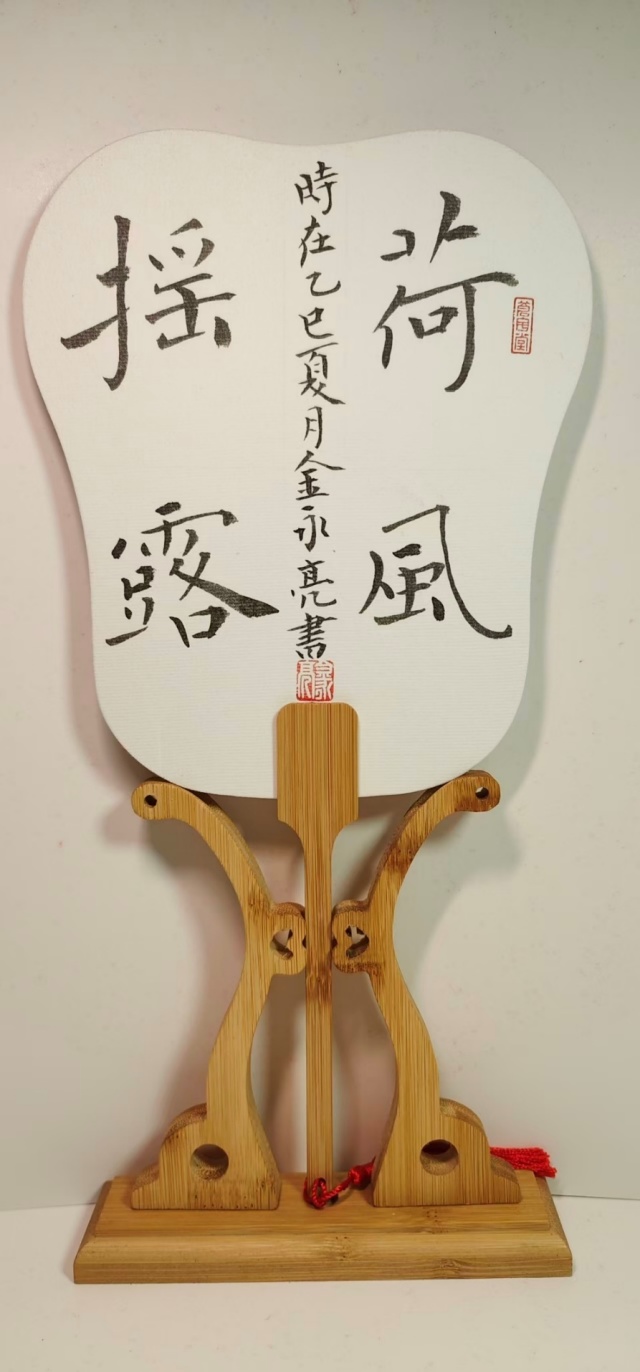 荷風
時在乙巳夏月金永亮書
搖露